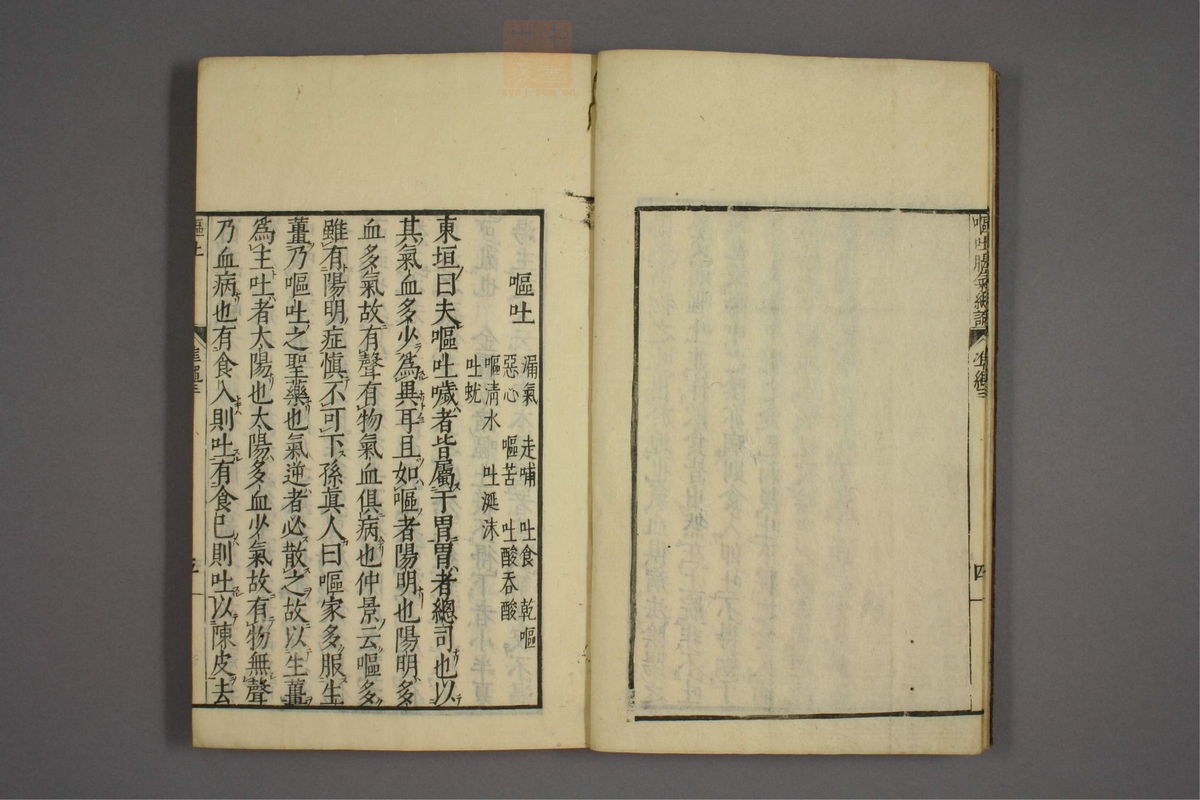 嘔吐膈氣總論
準繩三
四
嘔吐
漏氣 走哺 吐食 乾嘔
惡心 嘔苦 吐酸吞酸
嘔清水 吐涎沫
吐蚘
東垣曰夫嘔吐噦者皆屬于胃胃者總司也以
其氣血多少爲異耳且如嘔者陽明也陽明多
血多氣故有聲有物氣血俱病也仲景云嘔多
雖有陽明症慎不可下孫真人曰嘔家多服生
薑乃嘔吐之聖藥也氣逆者必散之故以生薑
爲主吐者太陽也太陽多血少氣故有物無聲
乃血病也有食入則吐有食已則吐以陳皮去
嘔吐
五